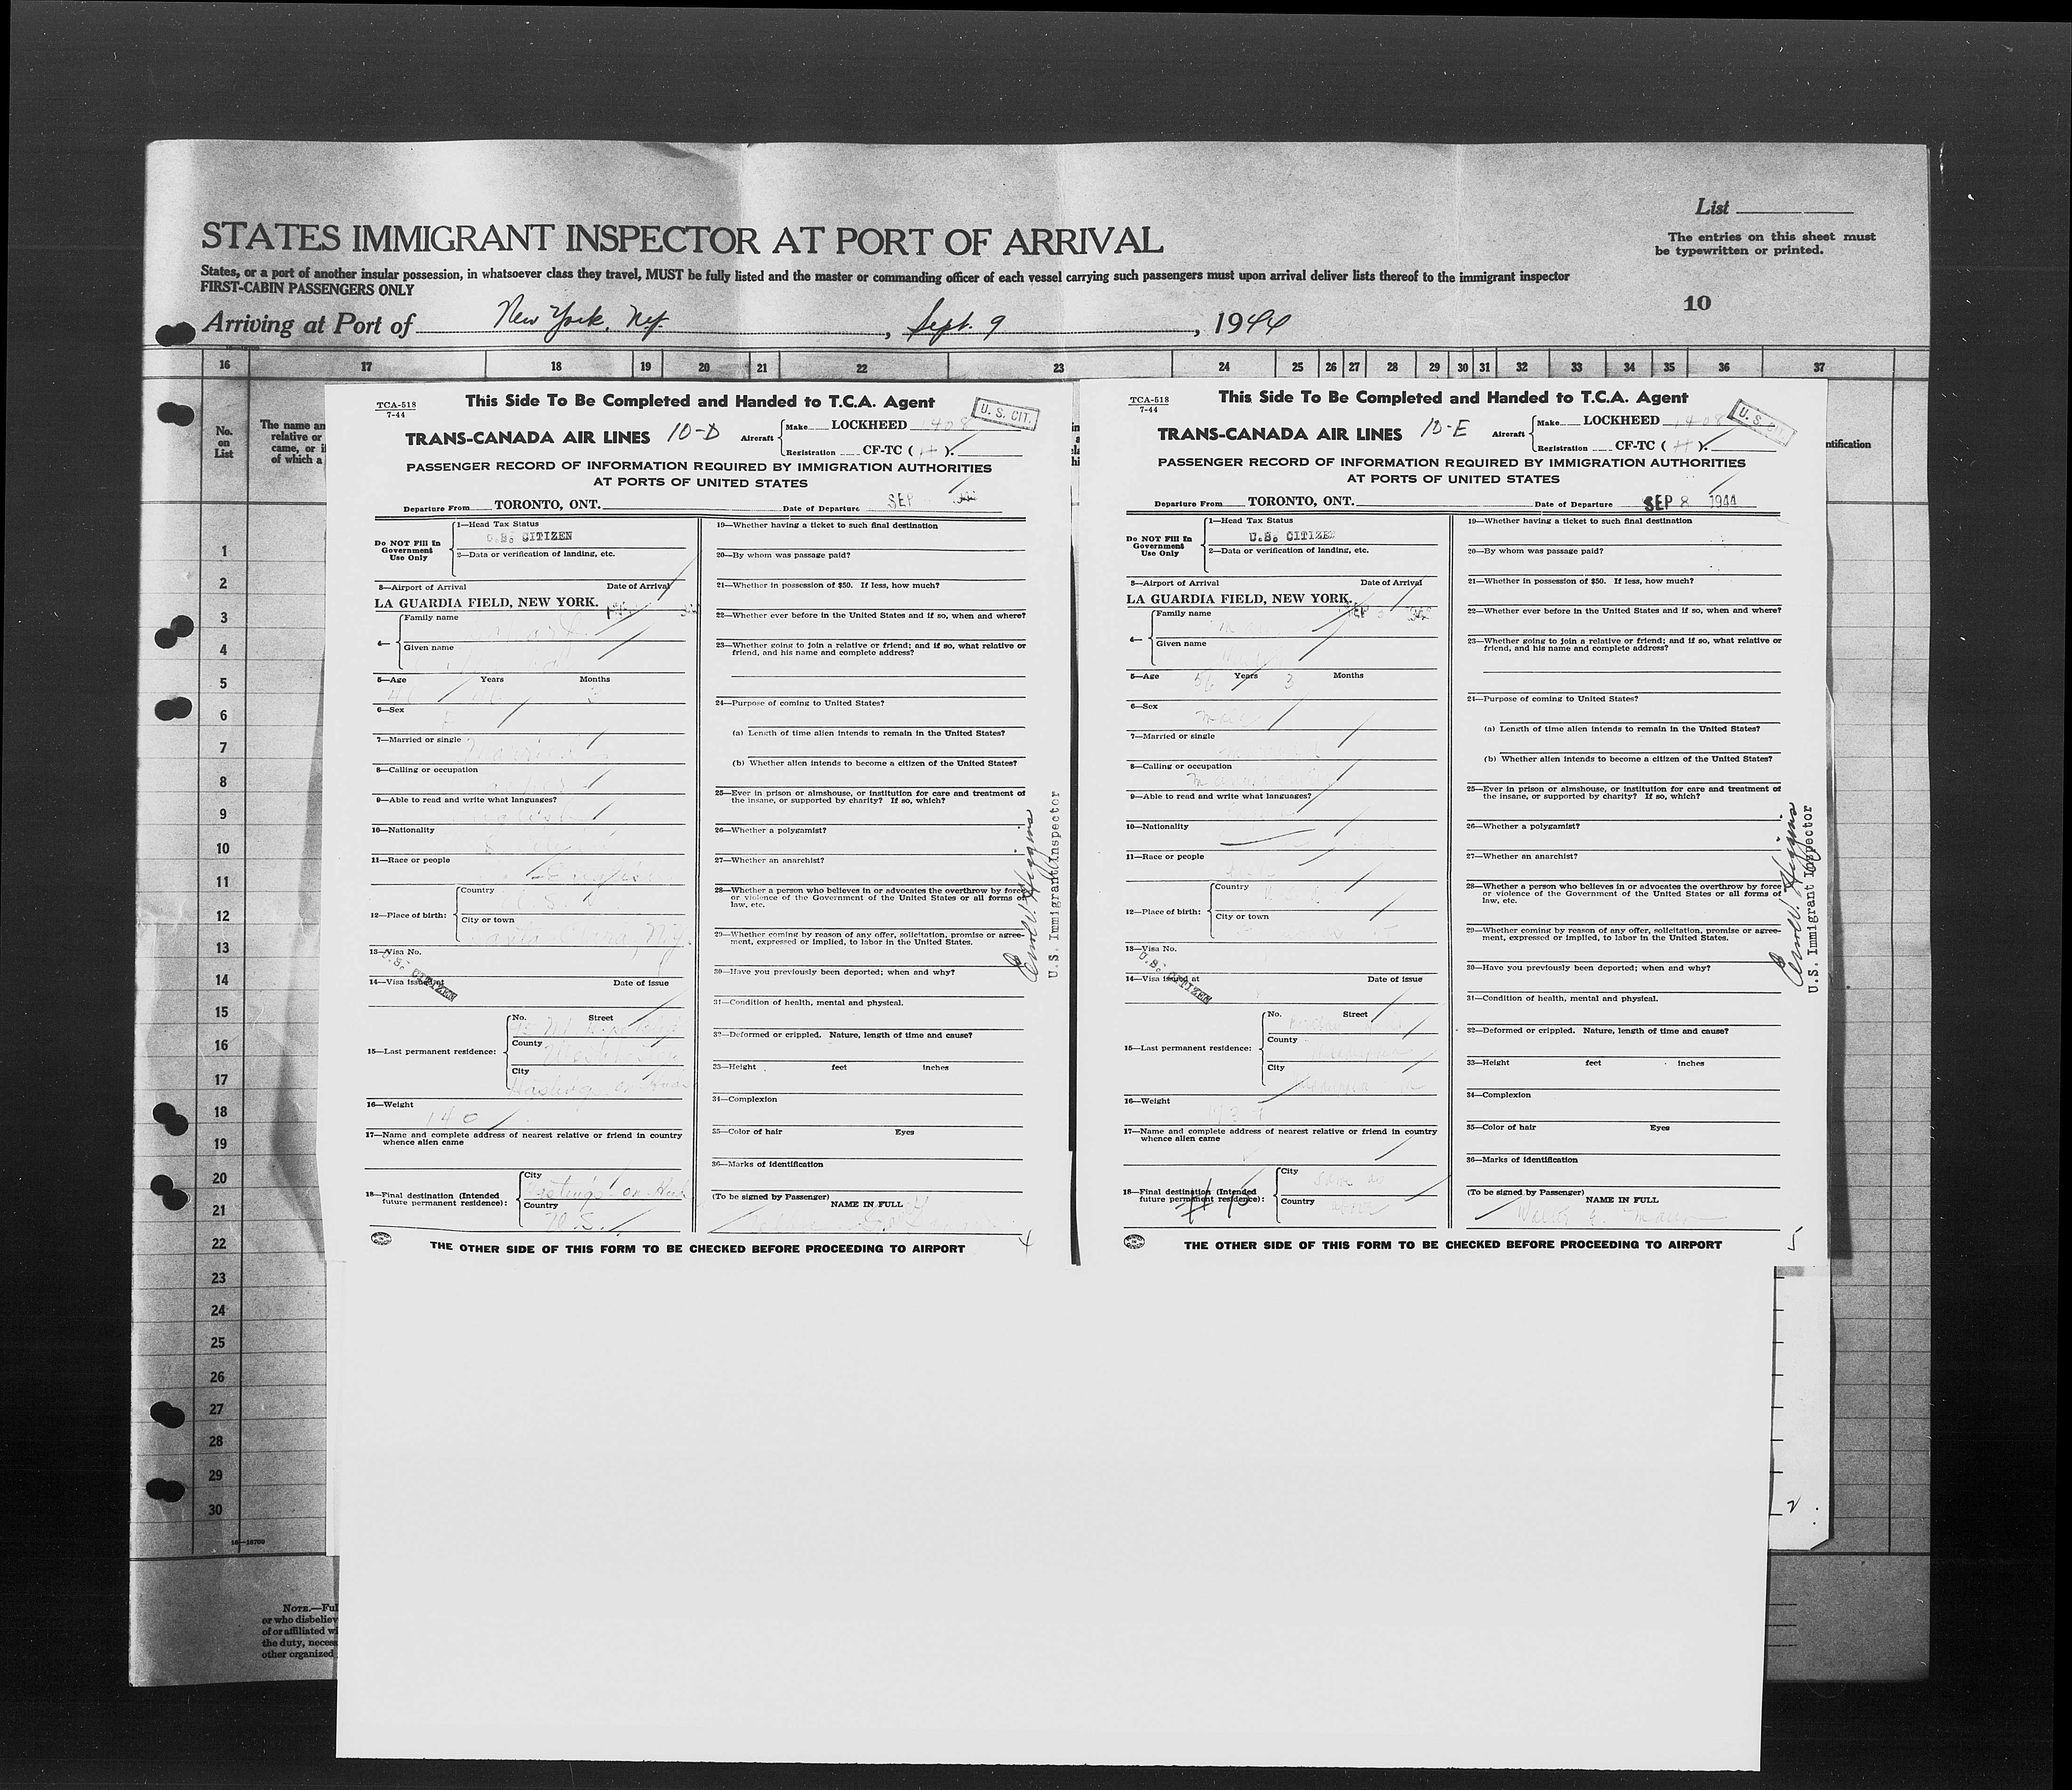 List
The entries on this sheet must
be typewritten or printed.
STATES IMMIGRANT INSPECTOR AT PORT OF ARRIVAL
States, or a port of another insular possession, in whatsoever class they travel, MUST be fully listed and the master or commanding officer of each vessel carrying such passengers must upon arrival deliver lists thereof to the immigrant inspector
FIRST-CABIN PASSENGERS ONLY
10
Arriving at Port of New York, N.Y., Sept. 9, 1944
16 17 18 19 20 21 22 23 24 25 26 27 28 29 30 31 32 33 34 35 36 37
No.
on
List
The name an
relative or
came, or i
of which a
ntification
1
2
3
4
5
6
7
8
9
10
11
12
13
14
15
16
17
18
19
20
21
22
23
24
25
26
27
28
29
30
16—18700
NOTE.—Ful
or who disbeliev
of or affiliated wi
the duty, necess
other organized
TCA-518
7-44
This Side To Be Completed and Handed to T.C.A. Agent
U. S. CIT.
TRANS-CANADA AIR LINES 10-D
Aircraft
Make LOCKHEED 1408
Registration CF-TC ( H ).
PASSENGER RECORD OF INFORMATION REQUIRED BY IMMIGRATION AUTHORITIES
AT PORTS OF UNITED STATES
Departure From TORONTO, ONT. Date of Departure SEP
Do NOT Fill In
Government
Use Only
1—Head Tax Status
U.S. CITIZEN
2—Data or verification of landing, etc.
3—Airport of Arrival Date of Arrival
LA GUARDIA FIELD, NEW YORK.
4—
Family name
Given name
5—Age Years Months
6—Sex
7—Married or single
8—Calling or occupation
9—Able to read and write what languages?
English
10—Nationality
11—Race or people
English
12—Place of birth:
Country
U.S.A
City or town
N.Y.
13—Visa No.
U.S. CITIZEN
14—Visa issued at Date of issue
15—Last permanent residence:
No. Street
County
Westchester
City
Hastings on Hudson
16—Weight
140
17—Name and complete address of nearest relative or friend in country
whence alien came
18—Final destination (Intended
future permanent residence):
City
Hastings on Hud
Country
U.S.
19—Whether having a ticket to such final destination
20—By whom was passage paid?
21—Whether in possession of $50. If less, how much?
22—Whether ever before in the United States and if so, when and where?
23—Whether going to join a relative or friend; and if so, what relative or
friend, and his name and complete address?
24—Purpose of coming to United States?
(a) Length of time alien intends to remain in the United States?
(b) Whether alien intends to become a citizen of the United States?
25—Ever in prison or almshouse, or institution for care and treatment of
the insane, or supported by charity? If so, which?
26—Whether a polygamist?
27—Whether an anarchist?
28—Whether a person who believes in or advocates the overthrow by force
or violence of the Government of the United States or all forms of
law, etc.
29—Whether coming by reason of any offer, solicitation, promise or agree-
ment, expressed or implied, to labor in the United States.
30—Have you previously been deported; when and why?
31—Condition of health, mental and physical.
32—Deformed or crippled. Nature, length of time and cause?
33—Height feet inches
34—Complexion
35—Color of hair Eyes
36—Marks of identification
(To be signed by Passenger)
NAME IN FULL
THE OTHER SIDE OF THIS FORM TO BE CHECKED BEFORE PROCEEDING TO AIRPORT
4
Higgins
U.S. Immigrant Inspector
TCA-518
7-44
This Side To Be Completed and Handed to T.C.A. Agent
U. S. CIT.
TRANS-CANADA AIR LINES 10-E
Aircraft
Make LOCKHEED 1408
Registration CF-TC ( H ).
PASSENGER RECORD OF INFORMATION REQUIRED BY IMMIGRATION AUTHORITIES
AT PORTS OF UNITED STATES
Departure From TORONTO, ONT. Date of Departure SEP 8 1944
Do NOT Fill In
Government
Use Only
1—Head Tax Status
U.S. CITIZEN
2—Data or verification of landing, etc.
3—Airport of Arrival Date of Arrival
LA GUARDIA FIELD, NEW YORK.
SEP
4—
Family name
Given name
5—Age 56 Years 3 Months
6—Sex
male
7—Married or single
8—Calling or occupation
9—Able to read and write what languages?
10—Nationality
11—Race or people
12—Place of birth:
Country
City or town
13—Visa No.
U.S. CITIZEN
14—Visa issued at Date of issue
15—Last permanent residence:
No. Street
County
City
16—Weight
17—Name and complete address of nearest relative or friend in country
whence alien came
18—Final destination (Intended
future permanent residence):
City
Same as
Country
above
19—Whether having a ticket to such final destination
20—By whom was passage paid?
21—Whether in possession of $50. If less, how much?
22—Whether ever before in the United States and if so, when and where?
23—Whether going to join a relative or friend; and if so, what relative or
friend, and his name and complete address?
24—Purpose of coming to United States?
(a) Length of time alien intends to remain in the United States?
(b) Whether alien intends to become a citizen of the United States?
25—Ever in prison or almshouse, or institution for care and treatment of
the insane, or supported by charity? If so, which?
26—Whether a polygamist?
27—Whether an anarchist?
28—Whether a person who believes in or advocates the overthrow by force
or violence of the Government of the United States or all forms of
law, etc.
29—Whether coming by reason of any offer, solicitation, promise or agree-
ment, expressed or implied, to labor in the United States.
30—Have you previously been deported; when and why?
31—Condition of health, mental and physical.
32—Deformed or crippled. Nature, length of time and cause?
33—Height feet inches
34—Complexion
35—Color of hair Eyes
36—Marks of identification
(To be signed by Passenger)
NAME IN FULL
THE OTHER SIDE OF THIS FORM TO BE CHECKED BEFORE PROCEEDING TO AIRPORT
5
Higgins
U.S. Immigrant Inspector
2